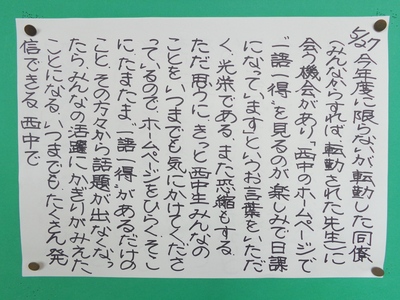 5/27 今年度に限らないが転勤した同僚
(みんなからすれば、転勤された先生)に
会う機会があり「西中のホームページで
"一語一得"を見るのが楽しみで日課
になっています」というお言葉をいただ
く。光栄である。また恐縮もする。
ただ思うに、きっと西中生みんなの
ことをいつまでも気にかけてくださ
っているので、ホームページをひらく。そこ
に、たまたま"一語一得"があるだけの
こと。その方々から話題が出なくなっ
たら、みんなの活躍にかぎりがみえた
ことになる。いつまでも、たくさん発
信できる西中で